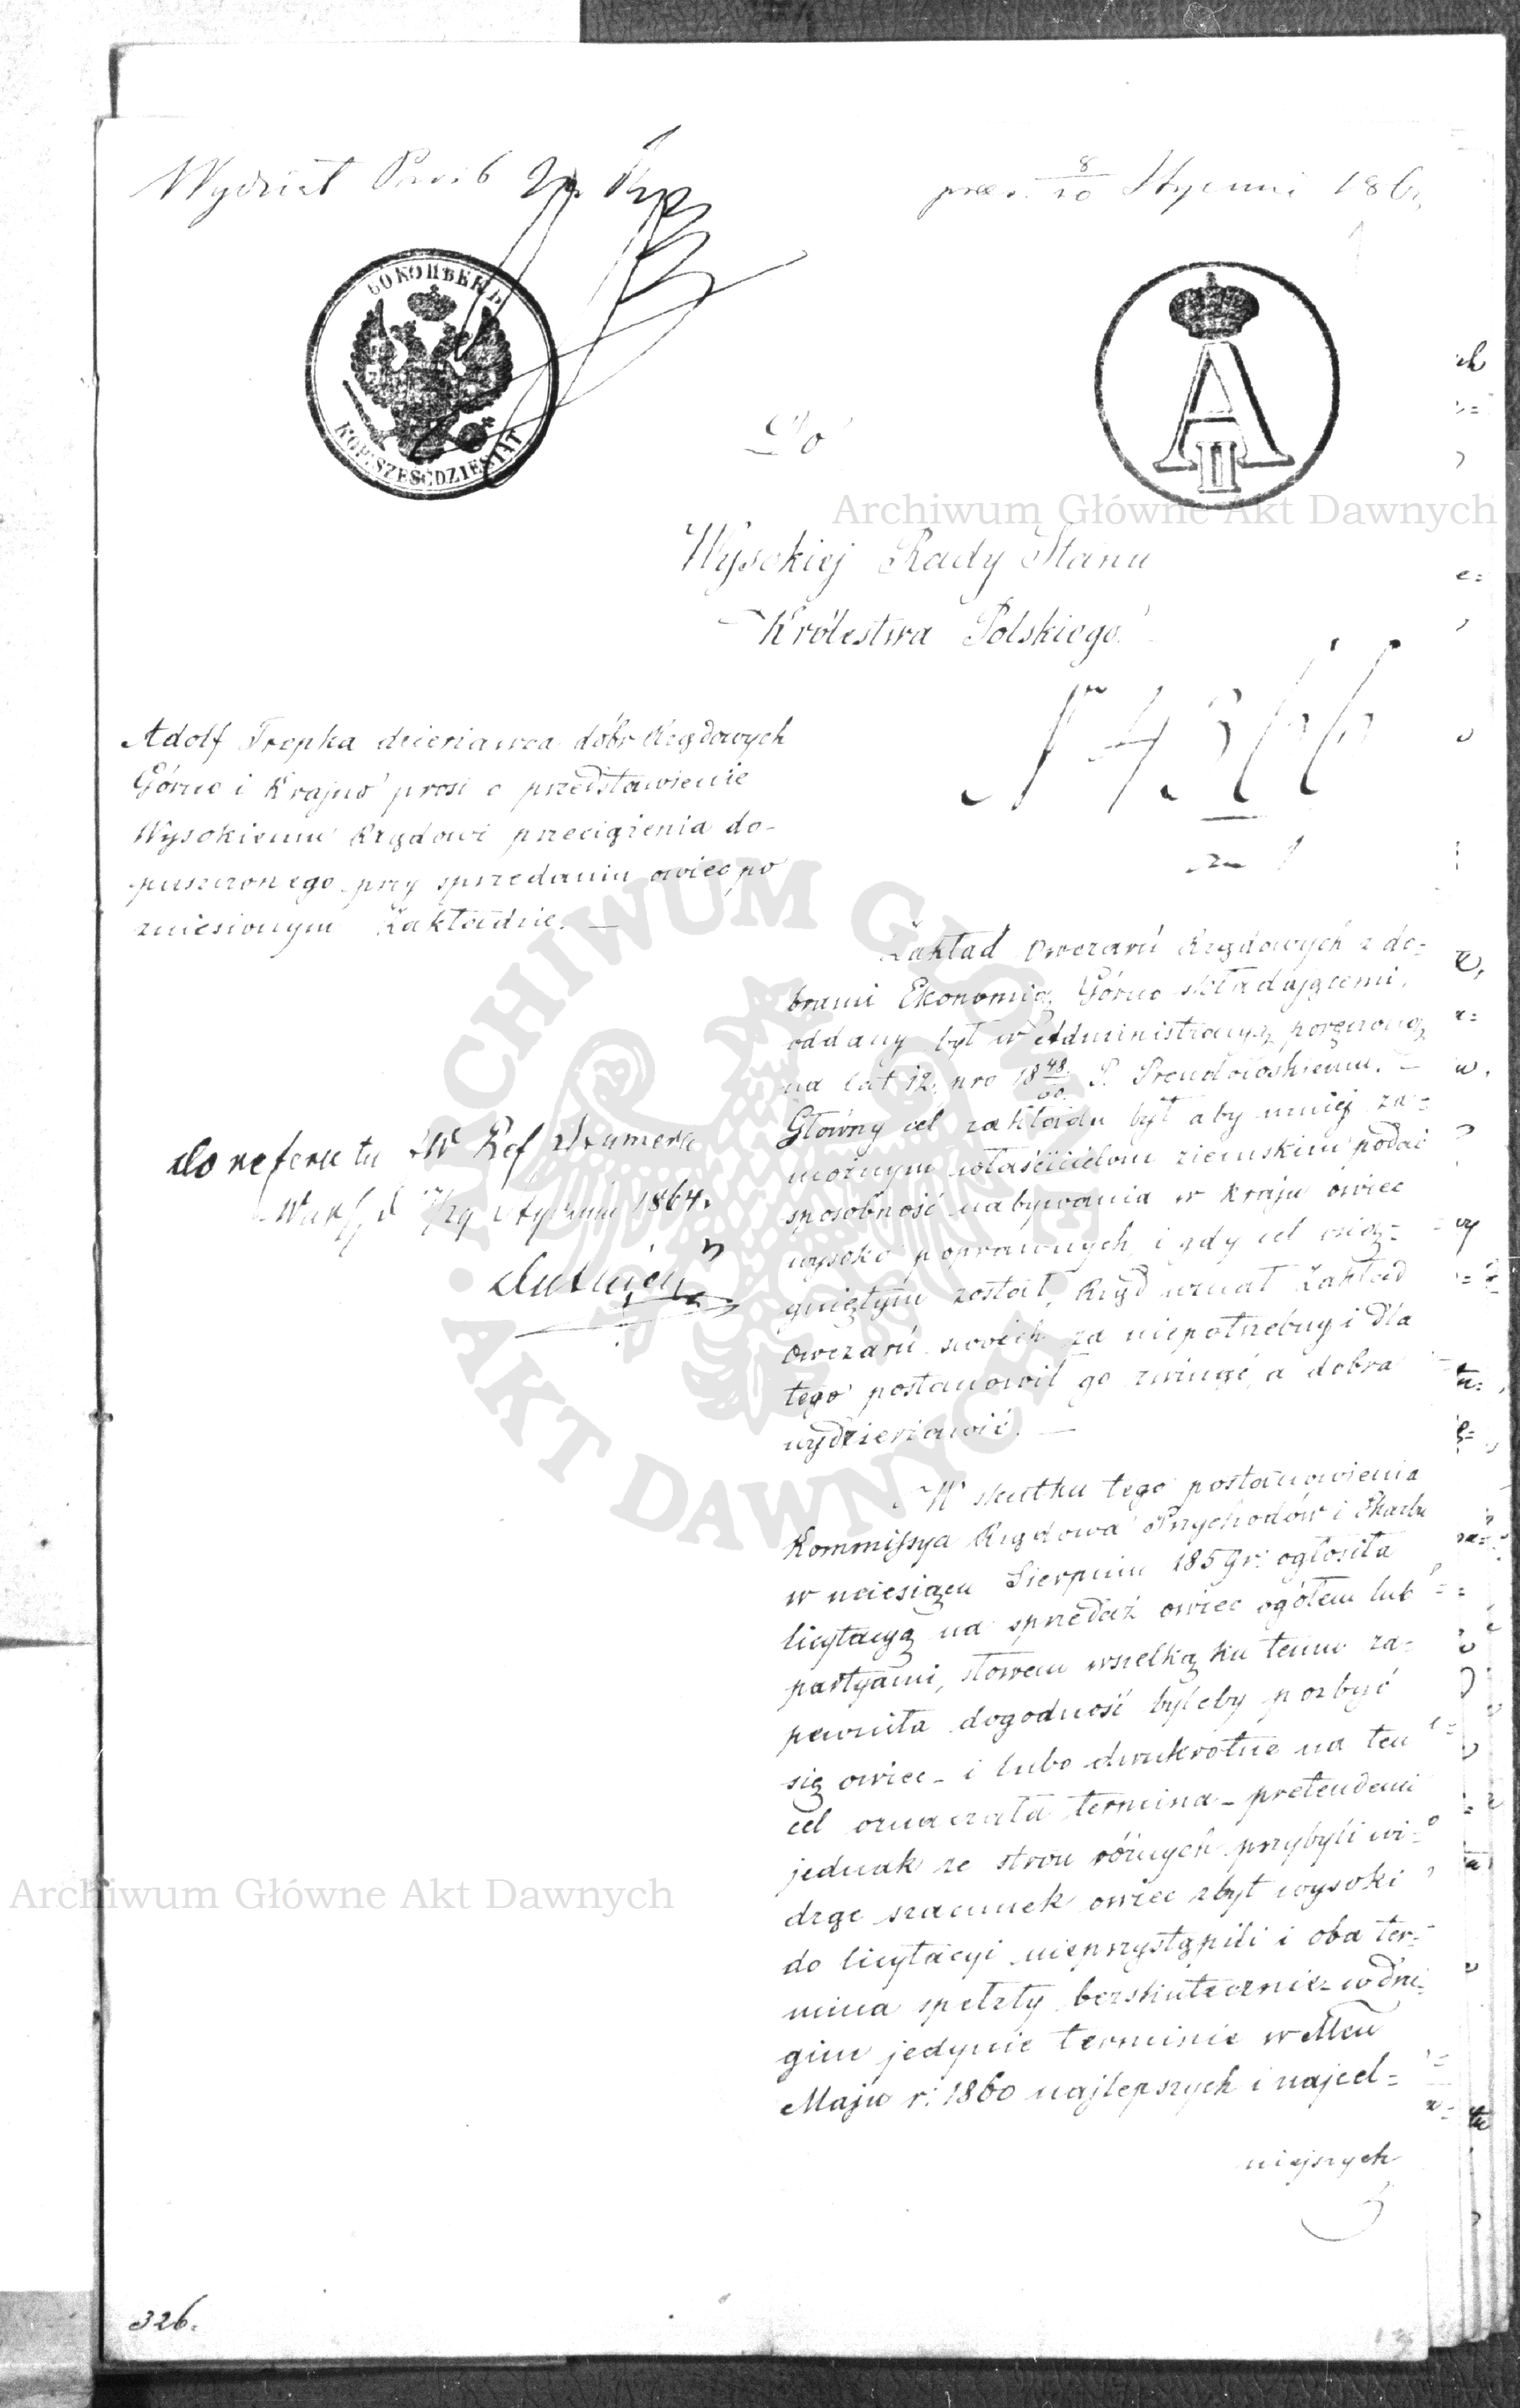 Wydział
prez. 8/20 Stycznia 186
60 КОПѢЕКЪ
KOP. SZEŚĆDZIESIĄT
A II
Do
Wysokiej Rady Stanu
Królestwa Polskiego
Archiwum Główne Akt Dawnych
Adolf Trepka dzierżawca dóbr Rządowych
Górno i Krajno prosi o przedstawienie
Wysokiemu Rządowi przeciążenia do-
puszczonego przy sprzedaniu owiec po
zniesionym Zakładzie. —
do referatu W Ref
Warsz. d. 17/29 Stycznia 1864.
ARCHIWUM GŁÓWNE
AKT DAWNYCH
Zakład Owczarń Rządowych z do=
brami Ekonomią Górno składającemi,
oddany był w Administracyą poręczoną
na lat 12, pro 1848/60. P. —
Główny cel zakładu był aby mniej za=
możnym właścicielom ziemskim podać
sposobność nabywania w Kraju owiec
wysoko poprawnych, i gdy cel osią=
gniętym został, Rząd uznał Zakład
owczarń swoich za niepotrzebny i dla
tego postanowił go zwinąć, a dobra
wydzierżawić. —
W skutku tego postanowienia
Kommissya Rządowa Przychodów i Skarbu
w miesiącu Sierpniu 1859 r: ogłosiła
licytacyą na sprzedaż owiec ogółem lub
partyami, słowem wszelką ku temu za=
pewniła dogodność byleby pozbyć
się owiec – i lubo dwukrotne na ten
cel oznaczała termina – pretendenci
jednak ze stron różnych przybyli wi=
dząc szacunek owiec zbyt wysoki
do licytacyi nieprzystąpili i oba ter=
mina spełzły bezskutecznie – w dru=
gim jedynie terminie w Mcu
Maju r: 1860 najlepszych i najcel=
niejszych
Archiwum Główne Akt Dawnych
326.